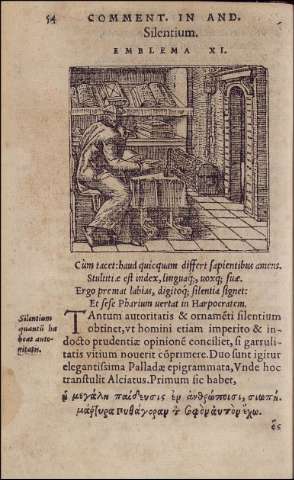 54 COMMENT. IN AND.
Silentium.
EMBLEMA XI.
Cùm tacet: haud quicquam differt sapientibus amens.
Stultitiæ est index, linguaq;, uoxq; suæ.
Ergo premat labias, digitoq; silentia signet:
Et sese Pharium uertat in Harpocratem.
Silentium
quantũ ha
beat auto-
ritatis.
TAntum autoritatis & ornamẽti silentium
obtinet, vt homini etiam imperito & in-
docto prudentiæ opinionẽ conciliet, si garruli-
tatis vitium nouerit cõprimere. Duo sunt igitur
elegantissima Palladæ epigrammata, Vnde hoc
transtulit Alciatus. Primum sic habet,
ἡ μεγάλη παίδευσις ἐν ἀνθρώποισι, σιωπή.
μάρτυρα πυθαγόραν τ̀ σοφὸν αὐτὸν ἔχω.
ὃς